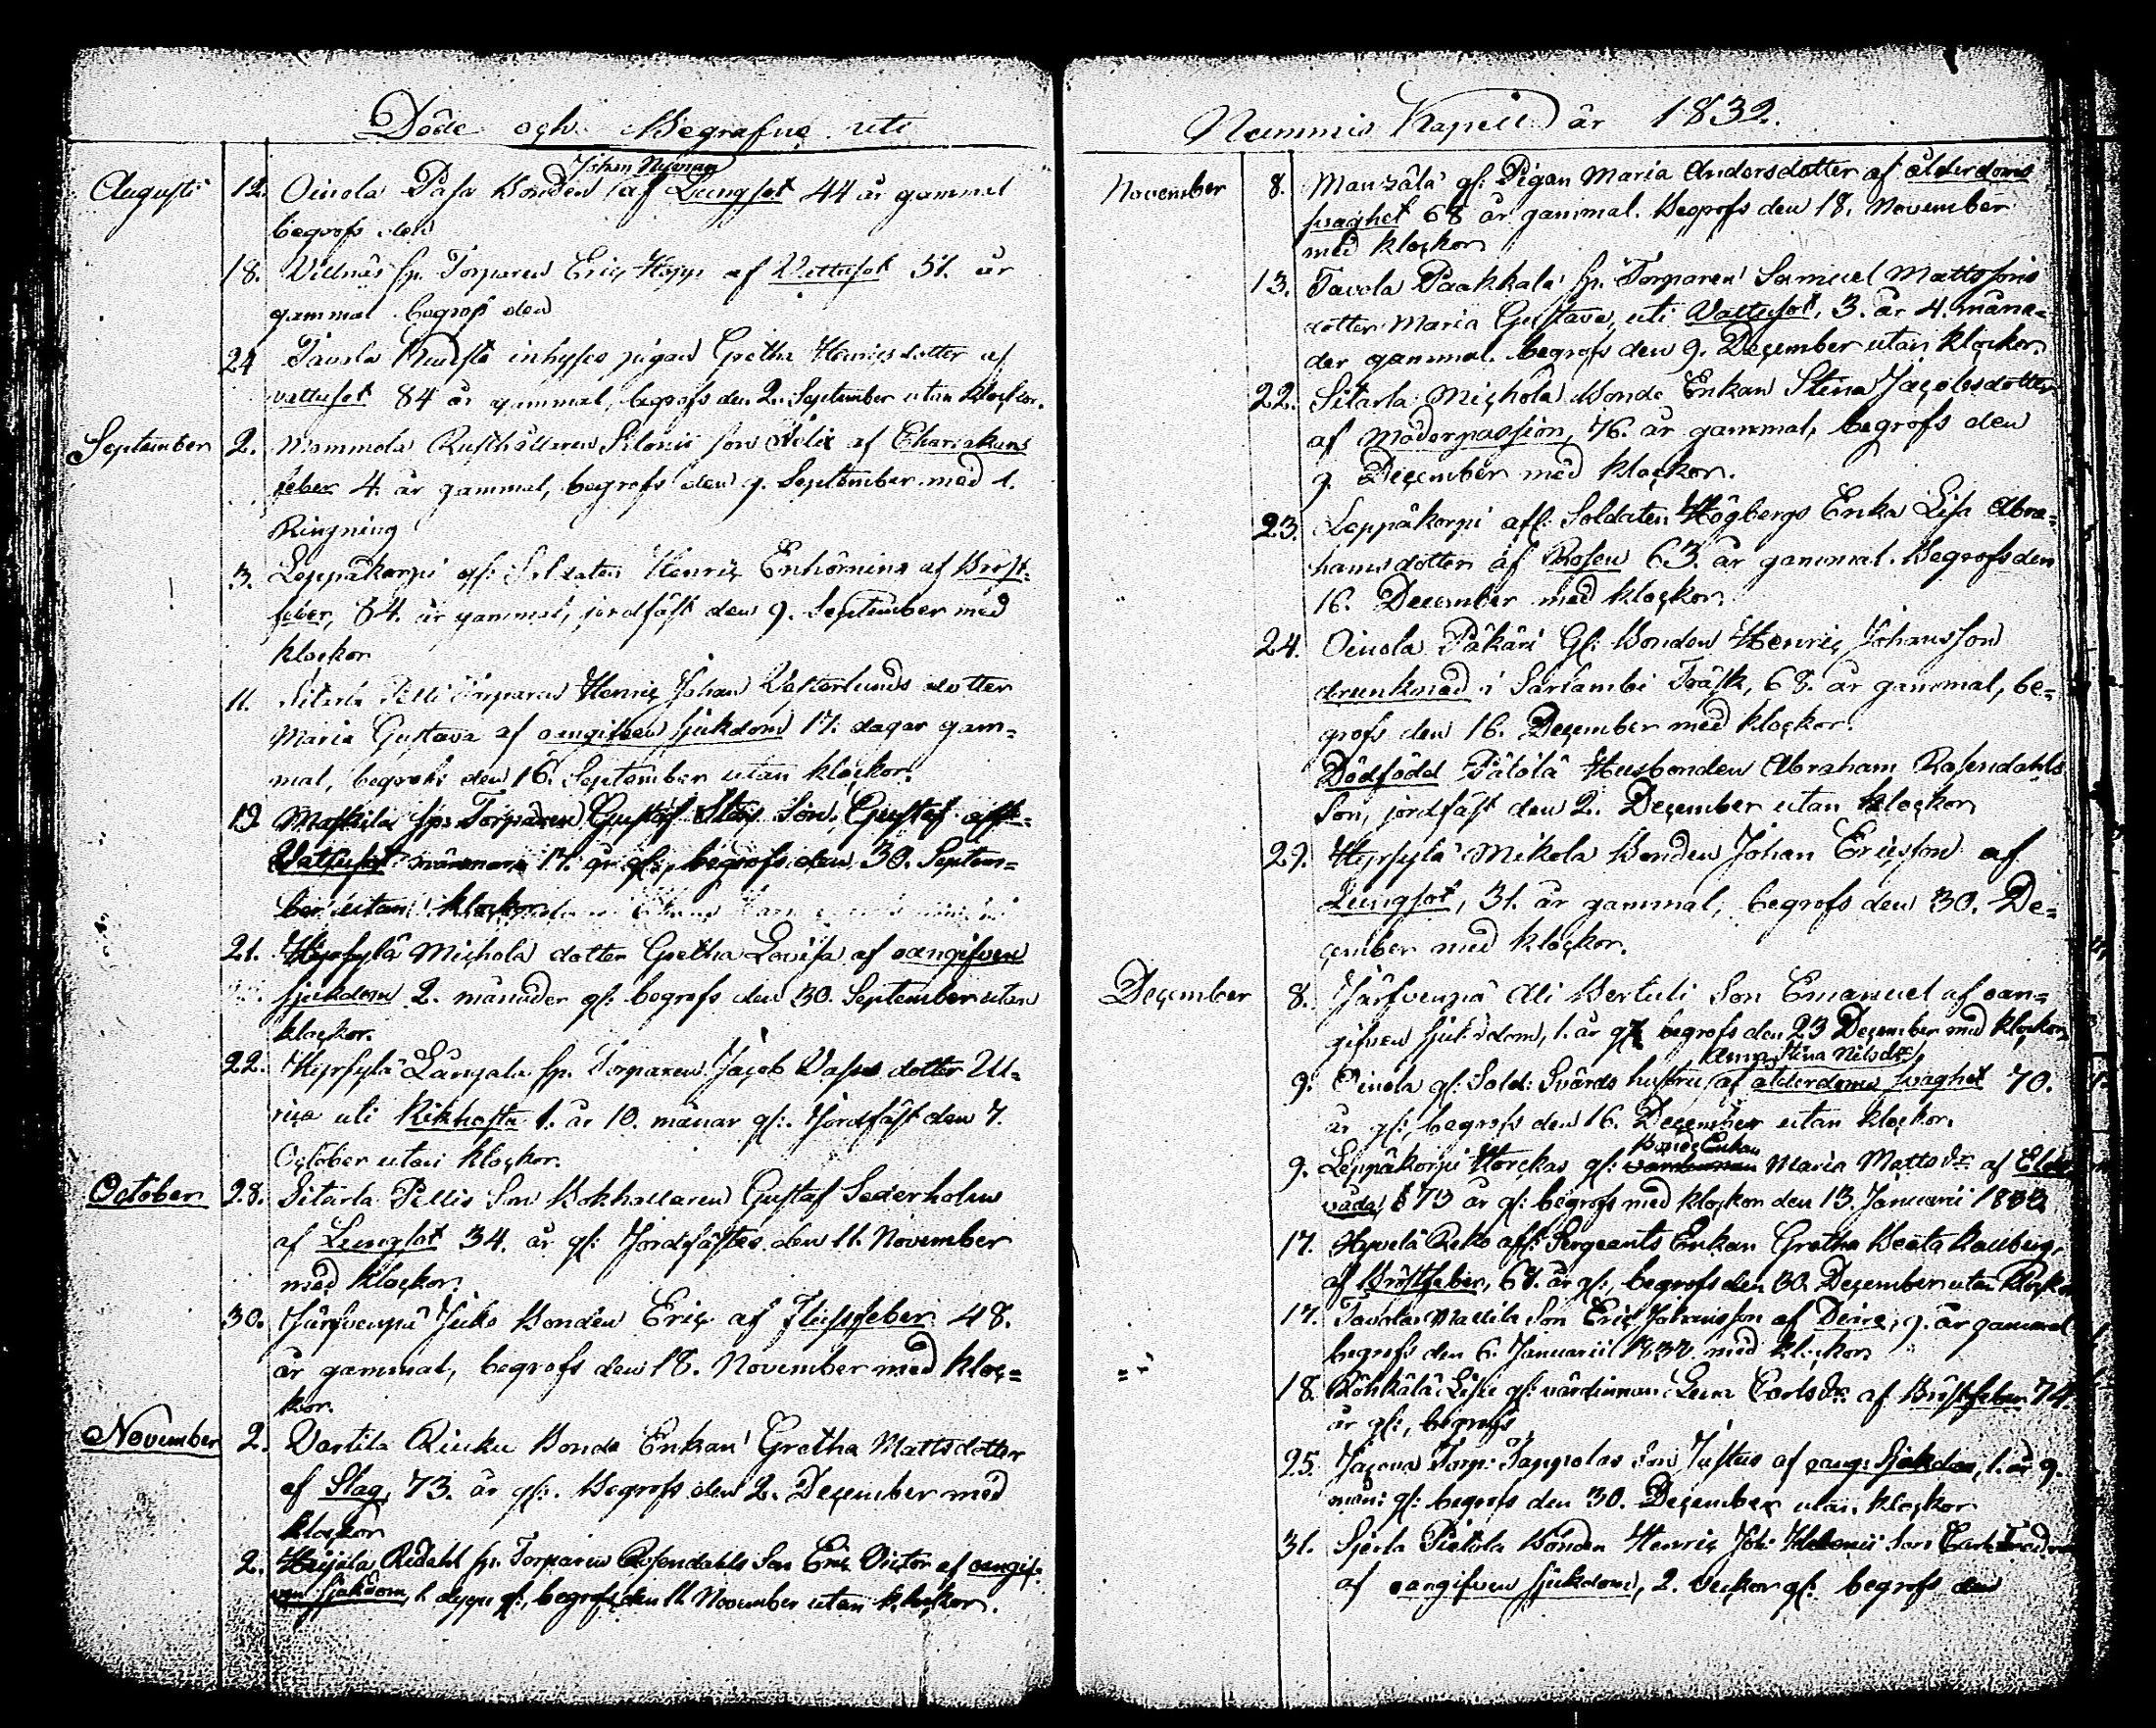 Döde och Begrafne uti
Augusti 12. Oinola Pasa Bonden Johan Nyman af Lungsot 44 år gammal
begrofs den
18. Villnäs sp. Torparen Eric Hopp af Vattusot 51. år
gammal begrofs den
24 Tavola inhyses pigan Gretha Henricsdotter af
vattusot 84 år gammal, begrofs den 2. September utan klockor.
September 2. Mommola Rusthållaren Silonii son Felix af Charlakans
feber 4. år gammal, begrofs den 9. September med 1.
Ringning
3. Leppäkorpi afs: Soldaten Henric Enhörning af Bröst-
feber, 64. år gammal, jordfäst den 9. September med
klockor
11. Sitarla Pelli Torparens Henric Johan Vesterlunds dotter
Maria Gustava af oangifven sjukdom 17. dagar gam=
mal, begrofs den 16. September utan klockor.
19. Maskila sp. Torparen Gustaf son, Gustaf af
Vattusot 17. år gl:, begrofs den 30. Septem=
ber utan klockor
21. Hyrsylä Michola dotter Gretha Lovisa af oangifven
sjukdom 2. månader gl: begrofs den 30. September utan
klockor.
22. Hyrsylä Långala sp. Torparen Jacob Vass dotter Ul=
rica uti Kikhosta 1. år 10. månar gl:. Jordfäst den 7.
October utan klockor.
October 28. Sitarla Pellis Son Bokhållaren Gustaf Sederholm
af Lungsot 34. år gl: Jordfästes den 11. November
med klockor.
30. Järfvenpä Juko Bonden Eric af Flussfeber 48.
år gammal, begrofs den 18. November med kloc=
kor.
November 2. Vartila Rinku Bonde Enkan Gretha Mattsdotter
af Slag, 73. år gl:. Begrofs den 2. December med
klockor
2. Huijala Ridahl sp. Torparen Rosendahls Son Eric Victor af oangif-
ven sjukdom, 1. dygn gl:, begrofs den 11. November utan klockor.
Nummis Kapell år 1832.
November 8. Mauzälä gl: Pigan Maria Andersdotter af ålderdoms
svaghet 68 år gammal. Begrofs den 18. November
med klockor
13. Tavola Paakkala sp. Torparen Samuel Mattssons
dotter Maria Gustava, uti Vattusot, 3. år 4. måna=
der gammal. begrofs den 9. December utan klockor.
22. Sitarla Michola Bonde Enkan Stina Jacobsdotter
af Moderpassion, 76. år gammal, begrofs den
9. December med klockor.
23. Leppäkorpi afl: Soldaten Högbergs Enka Lisa Abra=
hamsdotter af Rosen 63. år gammal. Begrofs den
16. December med klockor.
24. Oinola Päkäri Gl: Bonden Henric Johansson
drunknad i Särlambi Träsk, 68. år gammal, be=
grofs den 16. December med klockor.
Dödfödd Pätölä Husbonden Abraham Rosendahls
Son, jordfäst den 2. December utan klockor
29. Hyrsylä Mikola Bonden Johan Ericsson af
Lungsot, 31. år gammal, begrofs den 30. De=
cember med klockor.
December 8. Järfvenpä Ali Bertuli Son Emanuel af oan=
gifven sjukdom, 1. år gl: begrofs den 23 December med klockor
9. Oinola gl: Sold: Svärds hustru Anna Stina Nilsdr af ålderdoms svaghet 70.
år gl:, begrofs den 16. December utan klockor.
9. Leppäkorpi Horckas gl: Bonde Enkan Maria Mattsdr af Elds
våda, 73 år gl: begrofs med klockor den 13. Januarii 1833
17. Hyvelä Reko affl: Sergeants Enkan Gretha Beata Kallberg,
af Bröstfeber, 67. år gl:, begrofs den 30. December utan klockor
17. Tavola Mattila Son Eric Johansson af Diare, 9. år gammal
begrofs den 6. Januarii 1833 med klockor
18. Röhkälä gl: värdinnan Lena Carlsdr af Bröstfeber 74
år gl:, begrofs
25. Jacova Torp: Tappolas Son Justus af oang: Sjukdom, 1. år 9.
mån: gl: begrofs den 30. December utan klockor
31. Sjerla Pietola Bonden Henric Joh: son
af oangifven sjukdom, 2. veckor gl: begrofs den